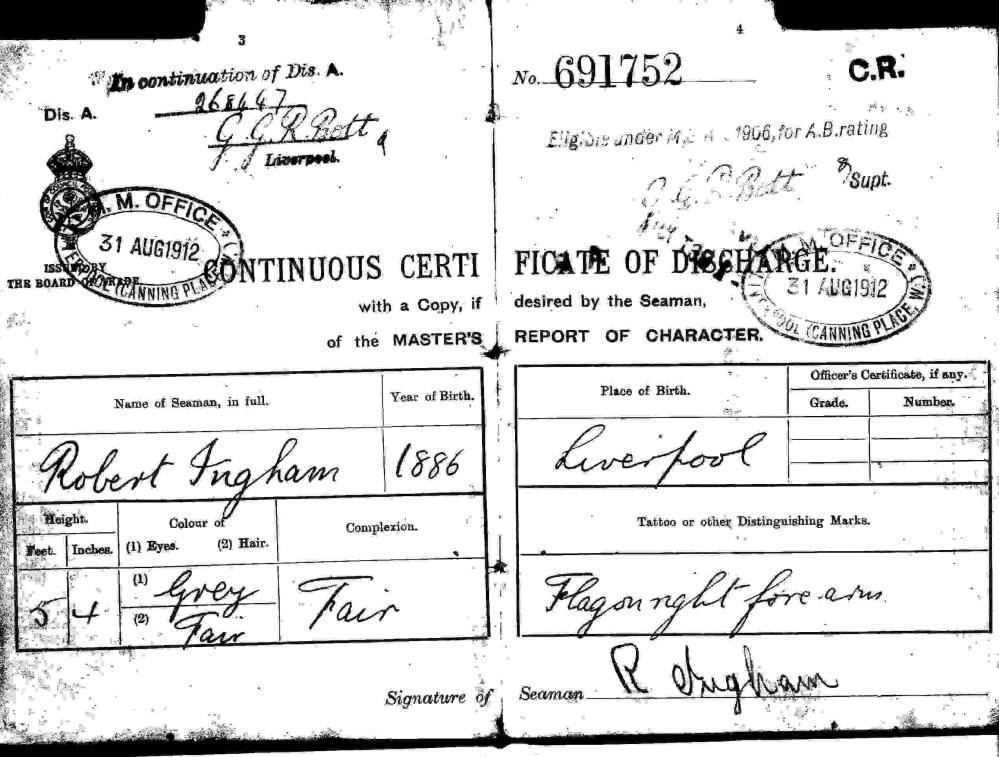 3
In continuation of Dis. A.
Dis. A.
G. G. R. Bott
Liverpool.
M. M. OFFICE
31 AUG 1912
LIVERPOOL (CANNING PLACE
ISSUED BY
THE BOARD OF TRADE
CONTINUOUS CERTI
with a Copy, if
of the MASTER'S
Name of Seaman, in full.
Year of Birth.
Robert Ingham
1886
Height.
Colour of
Complexion.
Feet.
Inches.
(1) Eyes.
(2) Hair.
5
4
(1) Grey
(2) Fair
Fair
Signature of
4
No. 691752
C.R.
Eligible under M.S.A. 1906, for A.B. rating
G. R. Bott
Supt.
FICATE OF DISCHARGE.
M. M. OFFICE
31 AUG 1912
LIVERPOOL (CANNING PLACE, W.
desired by the Seaman,
REPORT OF CHARACTER.
Place of Birth.
Officer's Certificate, if any.
Grade.
Number.
Liverpool
Tattoo or other Distinguishing Marks.
Flag on right fore arm
Seaman
R Ingham